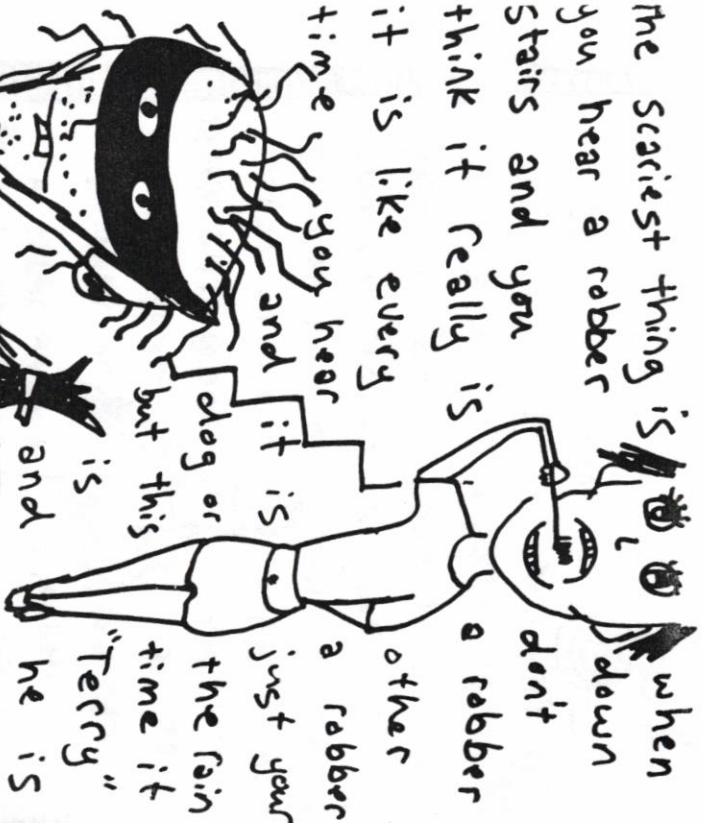 The scariest thing is when
you hear a robber down
stairs and you don't
think it really is a robber
it is like every other
time you hear a robber
and it is just your
dog or the rain
but this time it
is "Terry"
and he is